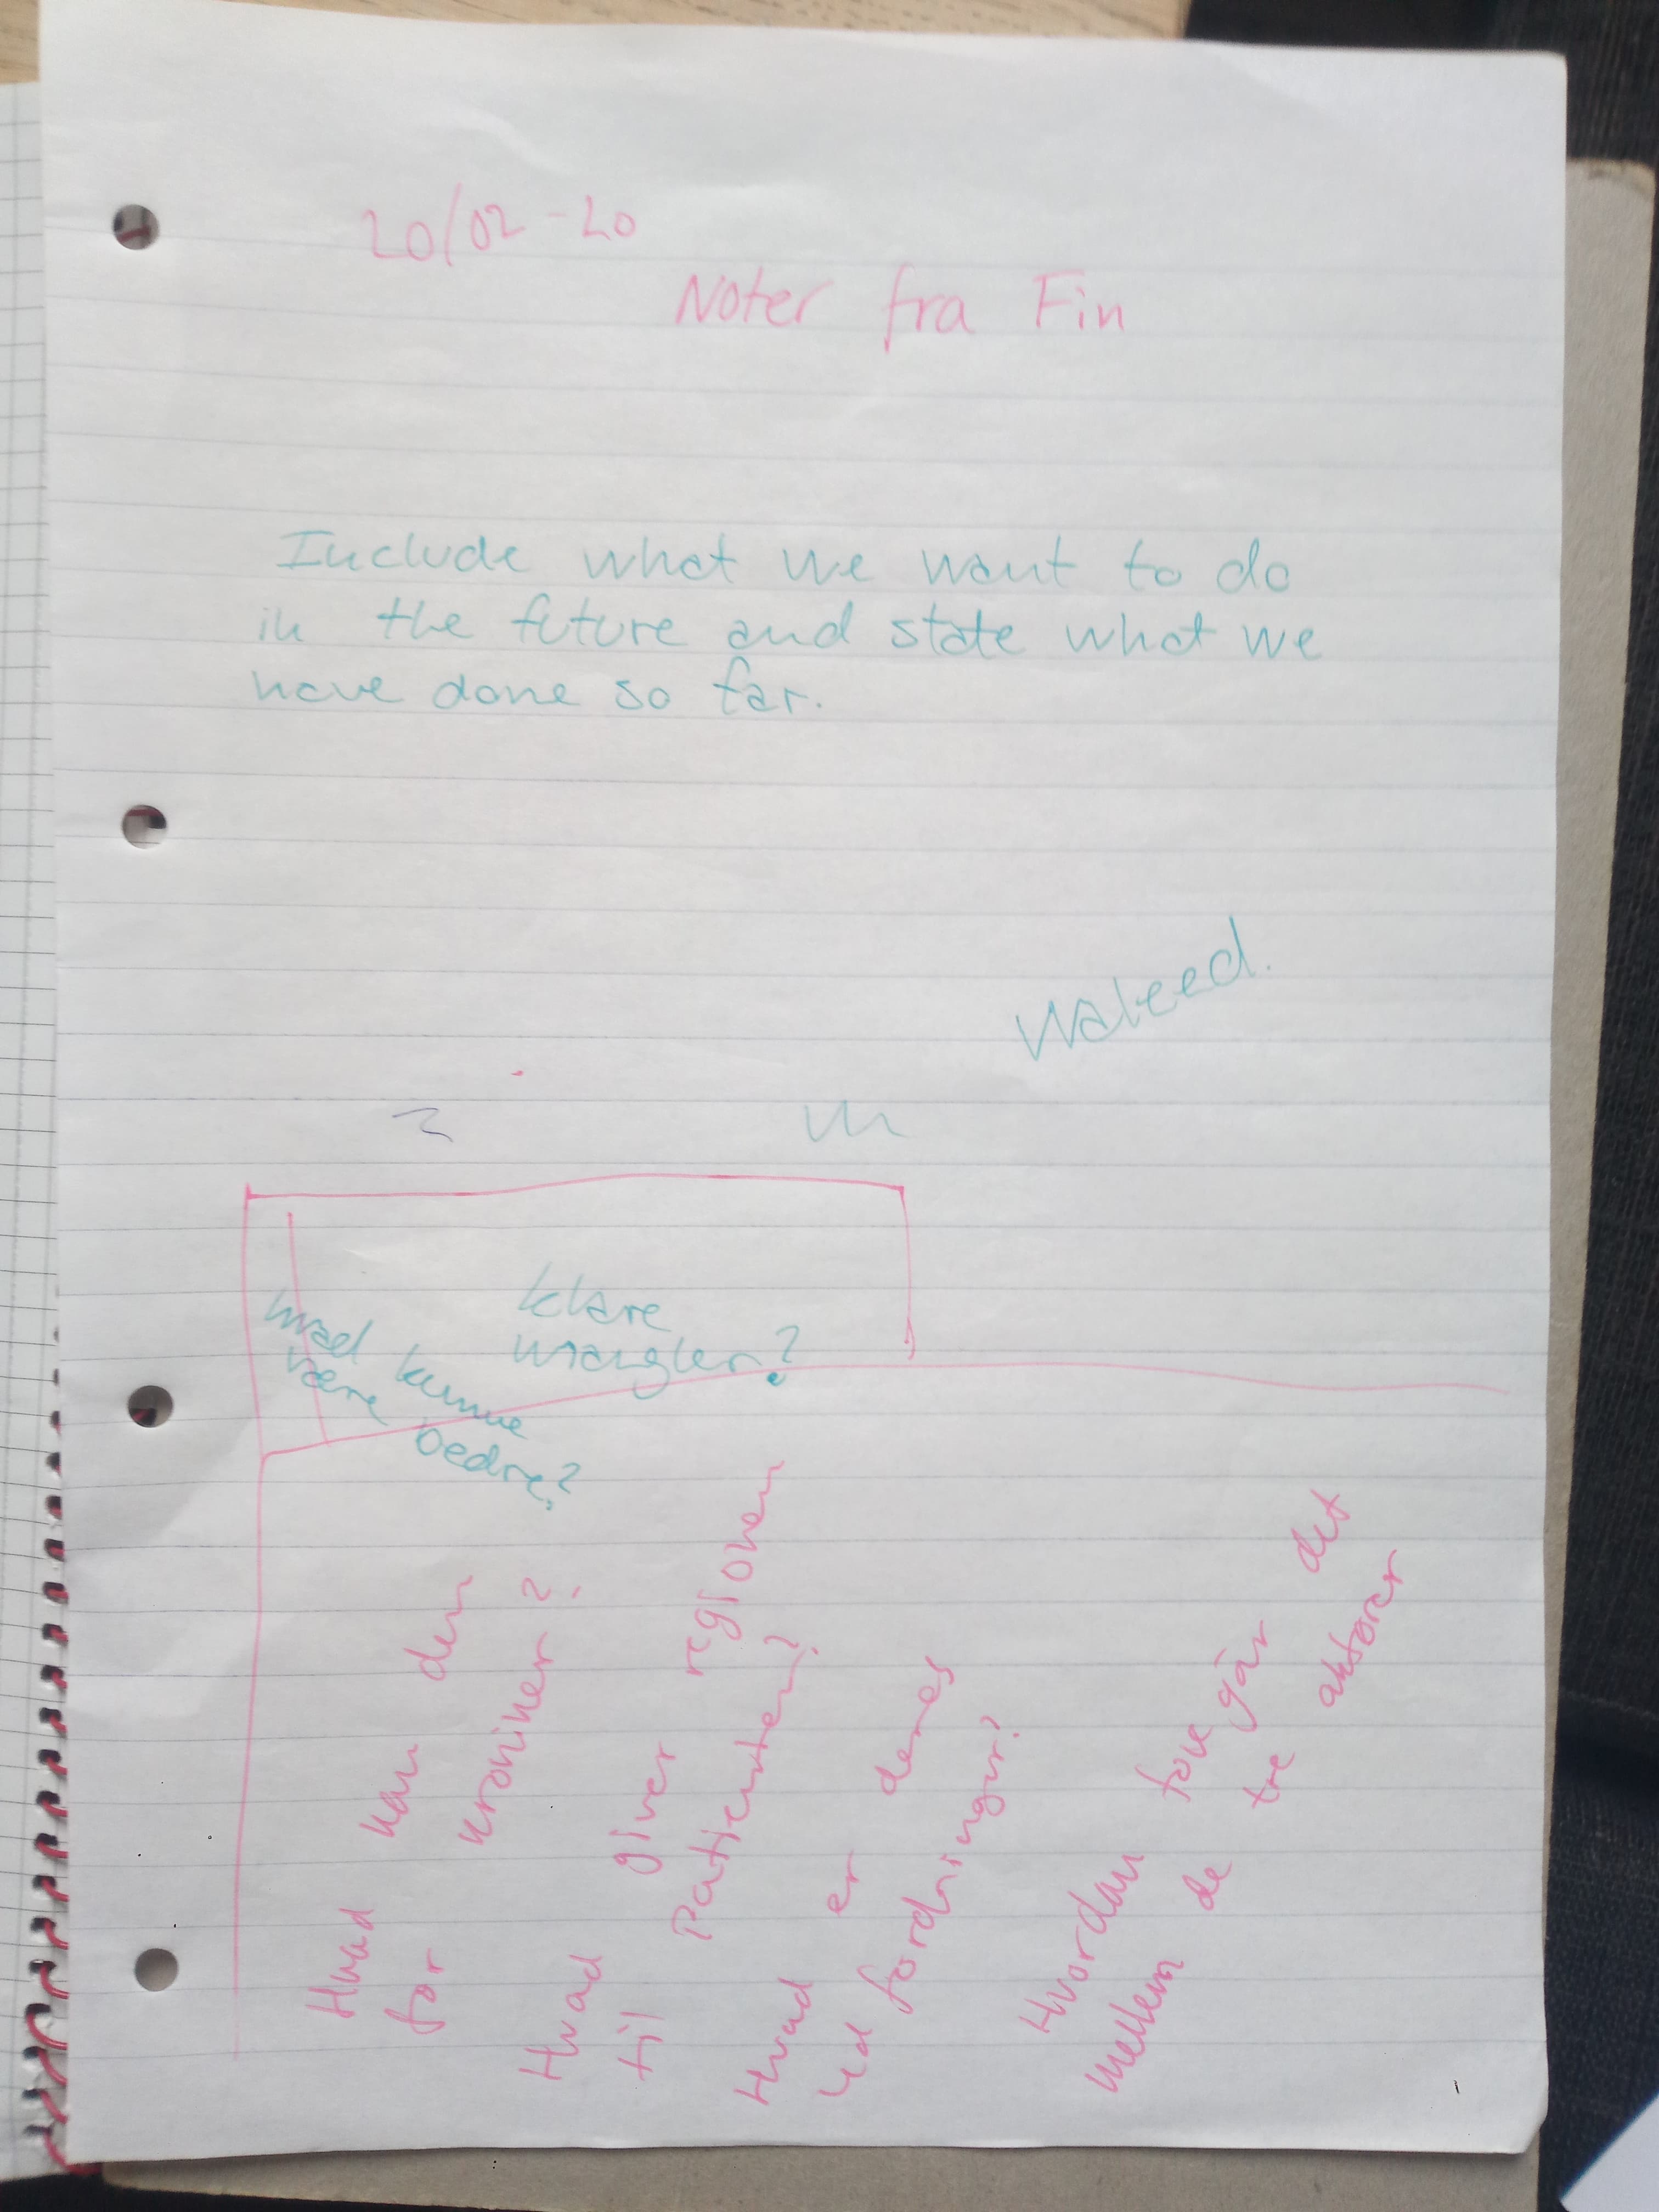 20/02-20
Noter fra Fin
Include what we want to do
in the future and state what we
have done so far.
Waleed.
klare
mangler?
hvad kunne
være bedre?
Hvad kan den
for kroniker?
Hvad giver regionen
til Pattienten?
Hvad er deres
udfordringer?
Hvordan foregår det
mellem de tre aktører